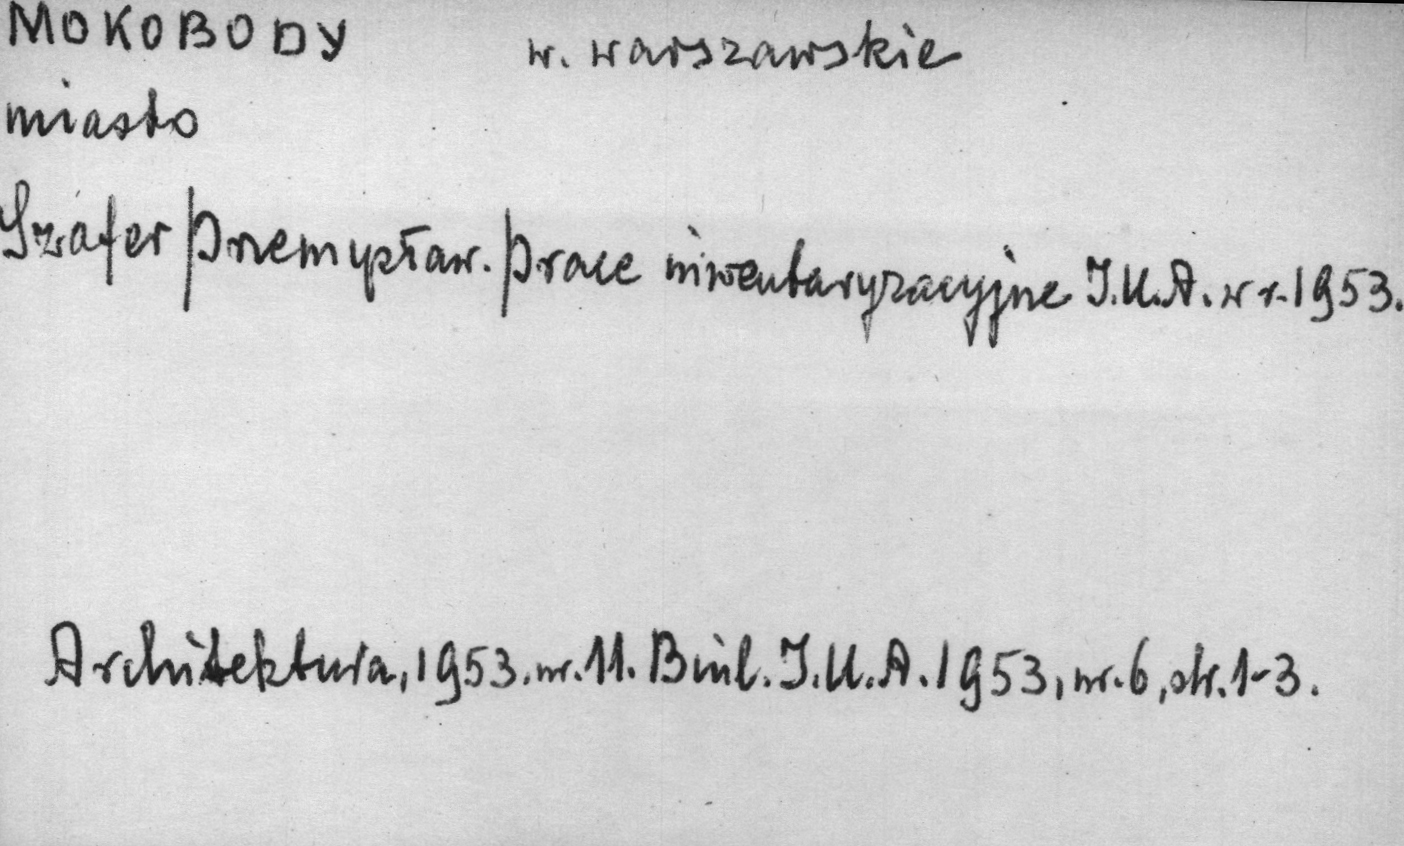 MOKOBODY w. warszawskie
miasto
Szafer Przemysław. Prace inwentaryzacyjne I.U.A. w r. 1953.
Architektura, 1953. nr. 11. Biul. I.U.A. 1953, nr. 6, str. 1-3.